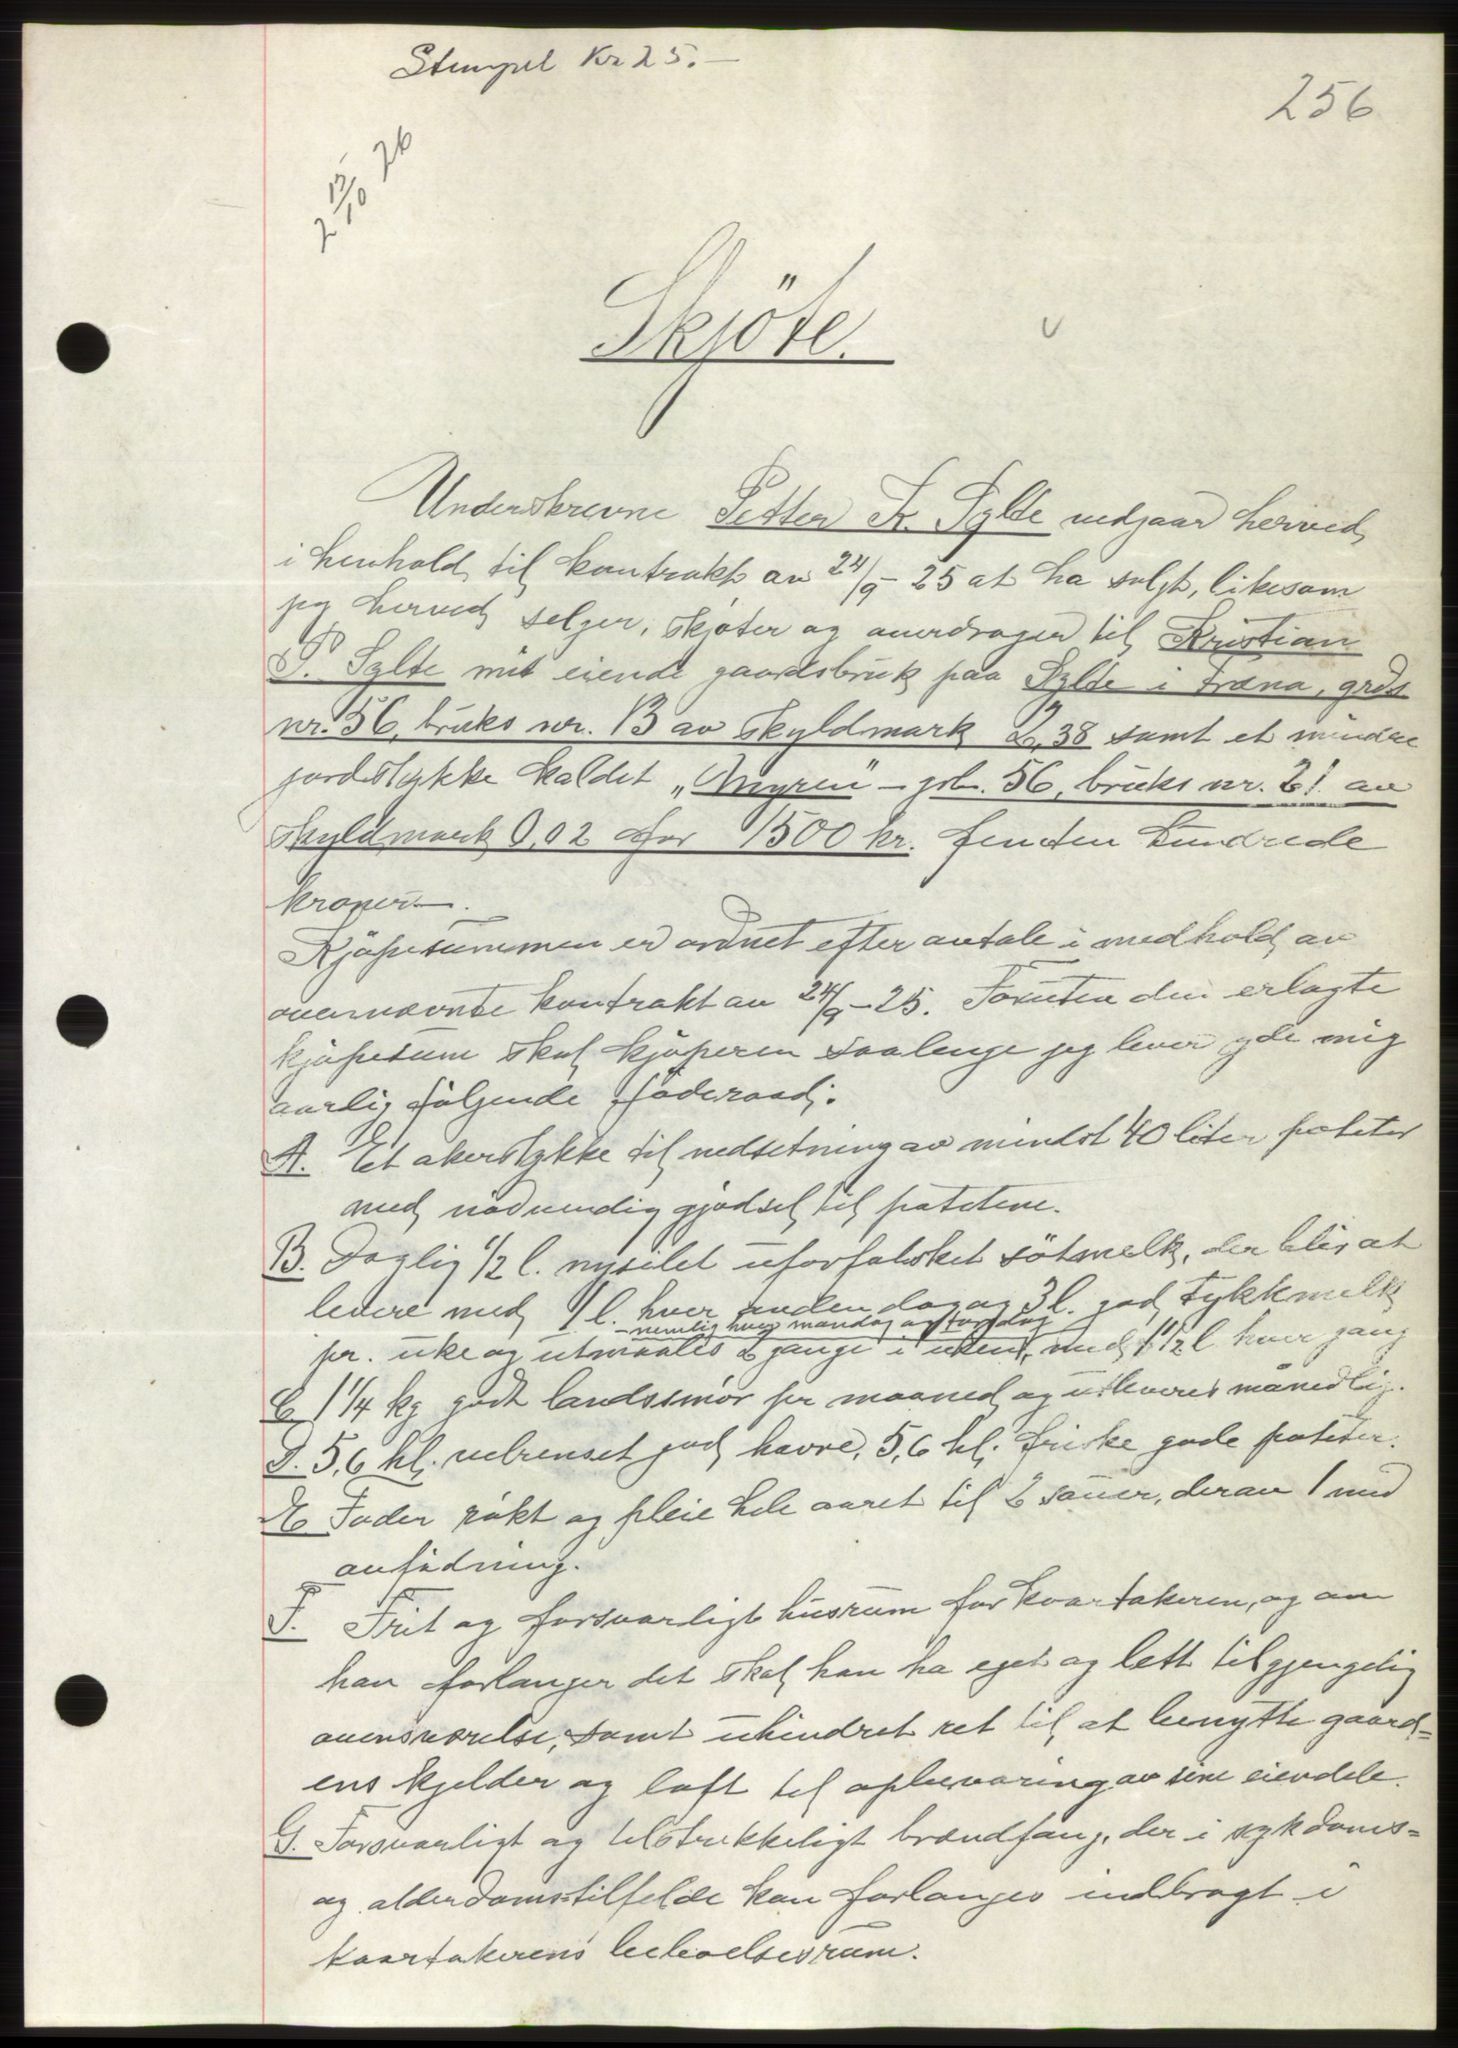 Stempel Kr 25.-
256
2 13/10 26
Skjöte.
Underskrevne Petter K. Sylte vedgaar herved,
i henhold til kontrakt av 24/9-25 at ha solgt, likesom
jeg herved selger, skjöter og overdrager til Kristian
P. Sylte mit eiende gaardsbruk paa Sylte i Fræna, grds
nr. 56, bruks nr. 13 av skyldmark 2,38 samt et mindre
jordstykke kaldet „Myren" - grn. 56, bruks nr. 21 av
skyldmark 0,02 for 1500 kr. femten hundrede
kroner-.
Kjöpesummen er ordnet efter avtale i medhold av
overnævnte kontrakt av 24/9-25. Foruten den erlagte
kjöpesum skal kjöperen saalenge jeg lever yde mig
aarlig fölgende föderaad:
A. Et akerstykke til nedsetning av mindst 40 liter poteter
med nödvendig gjödsel til potetene.
B. Daglig 1/2 l. nysilet uforfalsket sötmelk, der blir at
levere med 1 l. hver anden dag og 3 l. god tykkmelk
- nemlig hver mandag og torsdag
pr. uke og utmaales 2 gange i uken, med 1 1/2 l hver gang
C 1 1/4 kg godt landssmör pr maaned og utleveres månedlig.
D. 5,6 hl. velrenset god havre, 5,6 hl. friske gode poteter.
E Foder rökt og pleie hele aaret til 2 sauer, derav 1 med
avfödning.
F. Frit og forsvarligt husrum for kvartakeren, og om
han forlanger det skal han ha eget og lett tilgjengelig
ovensværelse, samt uhindret ret til at benytte gaard=
ens kjelder og loft til opbevaring av sine eiendele.
G. Forsvarligt og tilstrekkeligt brændfang, der i sykdoms=
og alderdomstilfelde kan forlanges indbragt i
kaartakerens beboelsesrum.